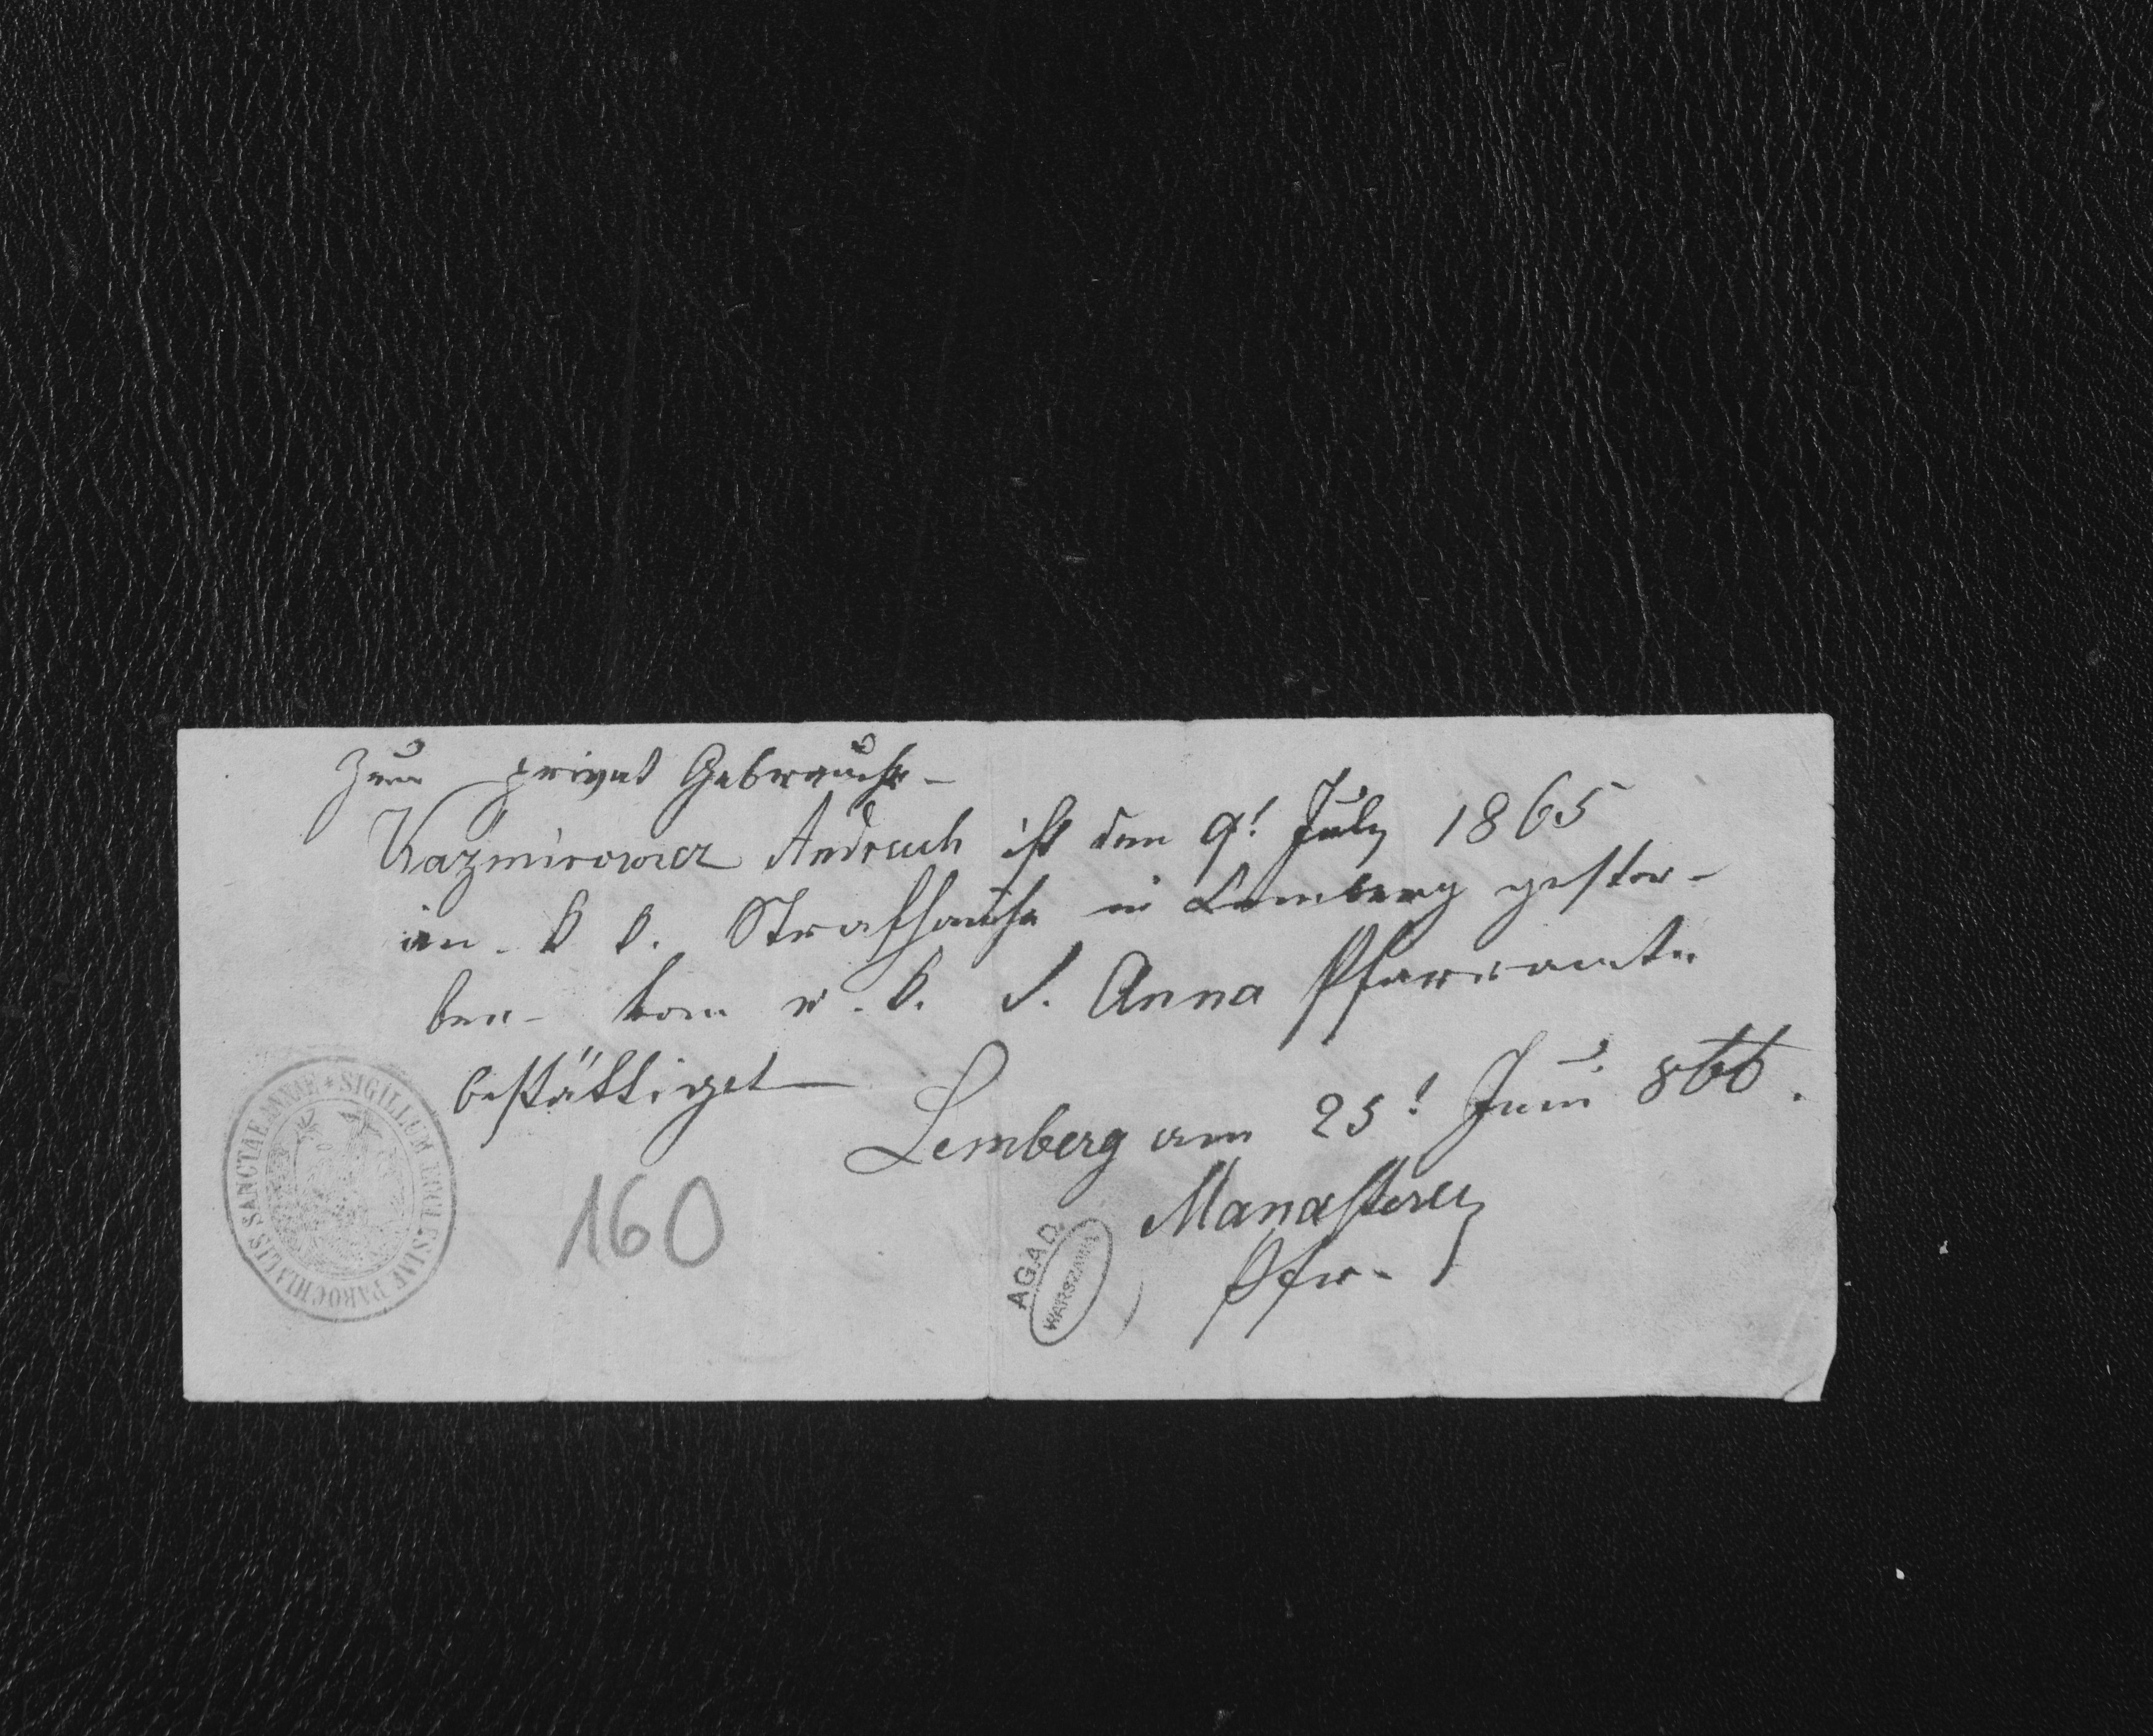 Zum privat Gebrauche
Kazmirowicz Andruch ist den 9t July 1865
im k k. Strafhause in Lemberg gestor-
ben - vom r. k. S. Anna Pfarramte
bestättiget
Lemberg am 25t Juni 866.
Manastersky
Pfr.
160
SIGILLUM ECCLESIAE PAROCHIALIS SANCTAE ANNAE
AGAD
WARSZAWA